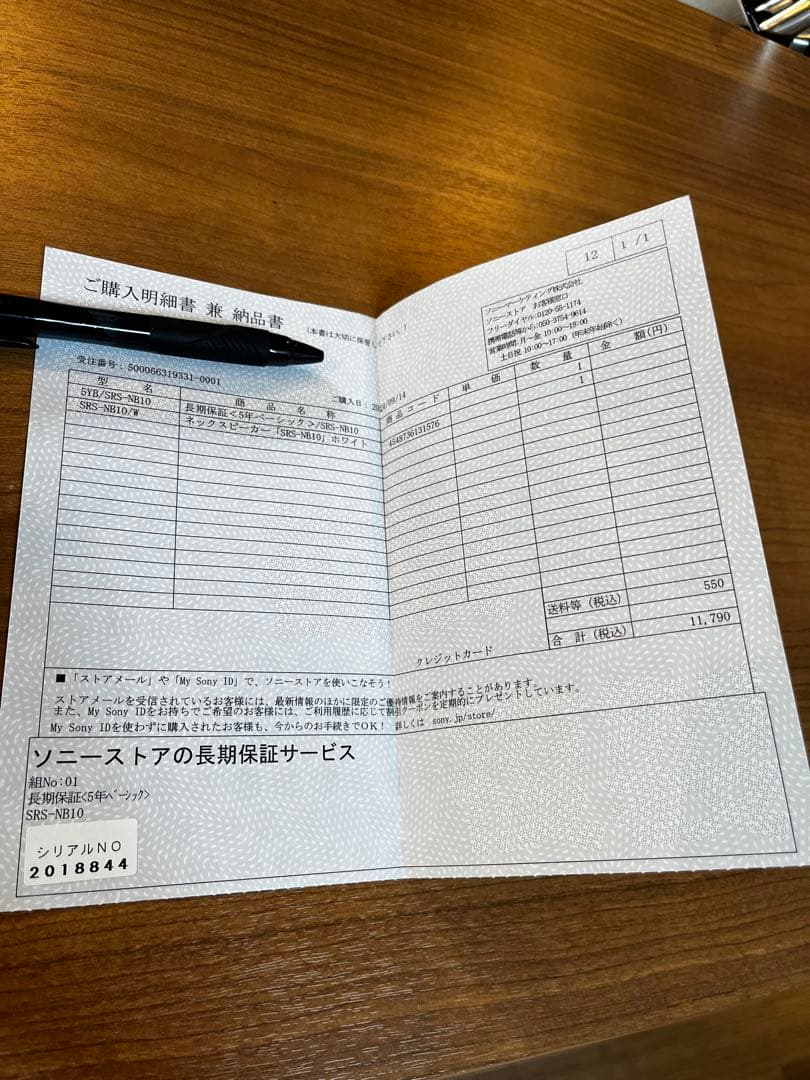 12 1 / 1
ご購入明細書 兼 納品書
(本書は大切に保管してください。)
ソニーマーケティング株式会社
ソニーストア お客様窓口
フリーダイヤル:0120-55-1174
携帯電話等から:050-3754-9614
営業時間:月～金 10:00～18:00
土日祝 10:00～17:00 (年末年始除く)
受注番号:500066319331-0001
ご購入日:
/09/14
型 名 商 品 名 称 商品コード 単 価 数 量 金 額(円)
5YB/SRS-NB10 長期保証<5年ベーシック>/SRS-NB10 1
SRS-NB10/W ネックスピーカー「SRS-NB10」ホワイト 4548736131576 1
送料等(税込) 550
合 計(税込) 11,790
クレジットカード
■「ストアメール」や「My Sony ID」で、ソニーストアを使いこなそう!
ストアメールを受信されているお客様には、最新情報のほかに限定のご優待情報をご案内することがあります。
また、My Sony IDをお持ちでご希望のお客様には、ご利用履歴に応じて割引クーポンを定期的にプレゼントしています。
My Sony IDを使わずに購入されたお客様も、今からのお手続きでOK! 詳しくは sony.jp/store/
ソニーストアの長期保証サービス
組No:01
長期保証<5年ベーシック>
SRS-NB10
シリアルNO
2018844